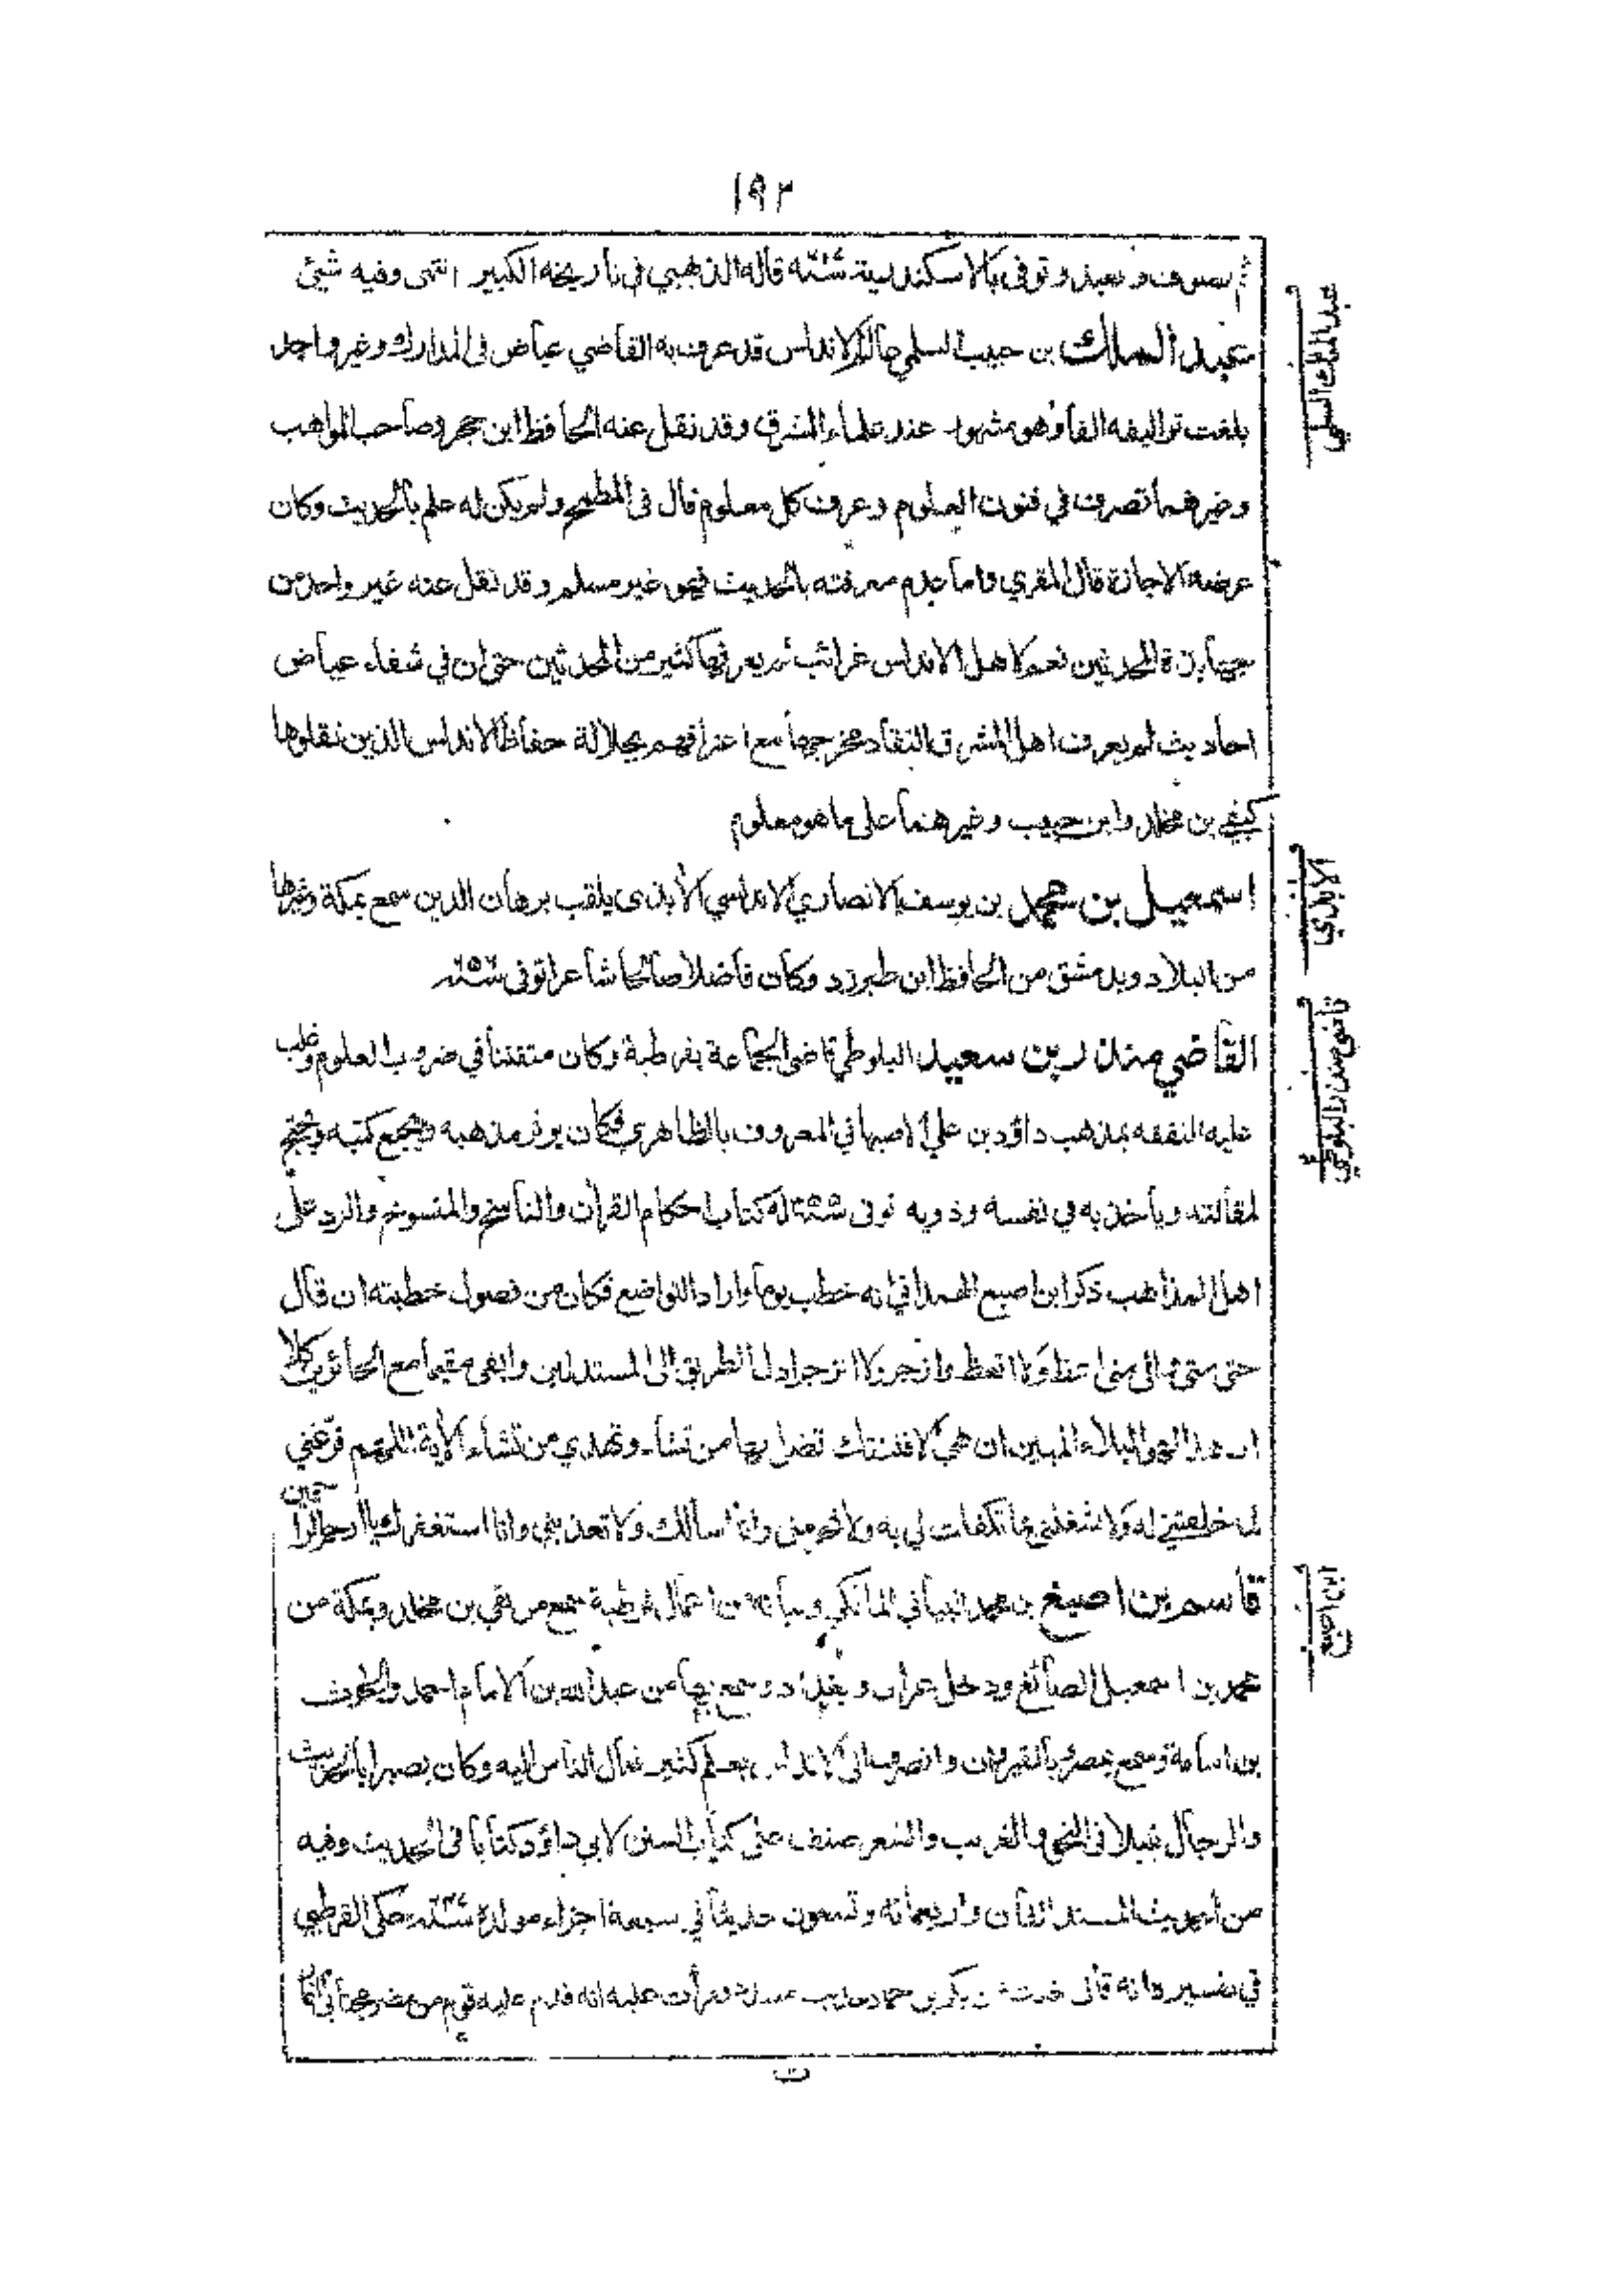 ١٩٣
ثم تصوف وتعبد وتوفى بالاسكندرية قاله الذهبي في تاريخه الكبير انتهى وفيه شيئ
عبد الملك بن حبيب السلمي عالم الاندلس قد عرف به القاضي عياض في المدارك وغير واحد
بلغت تواليفه الفا وهو مشهور عند علماء المشرق وقد نقل عنه الحافظ ابن حجر وصاحب المواهب
وغيرهما تصرف في فنون العلوم وعرف كل معلوم قال في المطمح ولم يكن له علم بالحديث وكان
غرضه الاجازة قال المقري واما عدم معرفته بالحديث فهو غير مسلم وقد نقل عنه غير واحد من
جهابذة المحدثين نعم لاهل الاندلس غرائب لم يعرفها كثير من المحدثين حتى ان في شفاء عياض
احاديث لم يعرف اهل المشرق النقاد مخرجها مع اعترافهم بجلالة حفاظ الاندلس الذين نقلوها
كبقي بن مخلد وابن حبيب وغيرهما على ما هو معلوم
اسمعيل بن محمد بن يوسف الانصاري الاندلسي الأبذى يلقب برهان الدين سمع بمكة وغيرها
من البلاد وبدمشق من الحافظ ابن طبرزد وكان فاضلا صالحا شاعرا توفى
القاضي منذر بن سعيد البلوطي قاضى الجماعة بقرطبة وكان متفننا في ضروب العلوم وغلب
عليه التفقه بمذهب داؤد بن علي الاصبهاني المعروف بالظاهري فكان يوثر مذهبه ويجمع كتبه ويحتج
لمقالته ويأخذ به في نفسه وذويه توفى له كتاب احكام القرأن والناسخ والمنسوخ والرد على
اهل المذاهب ذكر ابن اصبغ الهمداني انه خطب يوما واراد التواضع فكان من فصول خطبته ان قال
حتى متى والى متى اعظ ولا اتعظ وازجر ولا انزجر ادل الطريق الى المستدلين وابقى مقيما مع الحائرين كلا
ان هذا لهو البلاء المبين ان هي الا فتنتك تضل بها من تشاء وتهدي من تشاء الأية اللهم فرغني
لما خلقتني له ولا تشغلني بما تكفلت لي به ولا تحرمني وانا اسألك ولا تعذبني وانا استغفرك يا ارحم الراحمين
قاسم بن اصبغ بن محمد البياني المالكي وبيانه من اعمال قرطبة سمع من بقي بن مخلد وبمكة من
محمد بن اسمعيل الصائغ ودخل عراق وبغداد وسمع بها من عبد الله بن الامام احمد والحرث
بن اسامة وسمع بمصر بالقيروان وانصرف الى الاندلس بعلم كثير فمال الناس اليه وكان بصيرا بالحديث
والرجال نبيلا في النحو والغريب والشعر صنف على كتاب السنن لابي داؤد كتابا في الحديث وفيه
من الحديث المسند الفان واربعمائة وتسعون حديثا في سبعة اجزاء مولده حكى القرطبي
في تفسيره انه قال بكر بن حماد عليه انه قدم عليه قوم من مضر مجتابى النما
ت
عبد الملك السلمي
الأبذي
قاضي منذر البلوطي
ابن اصبغ